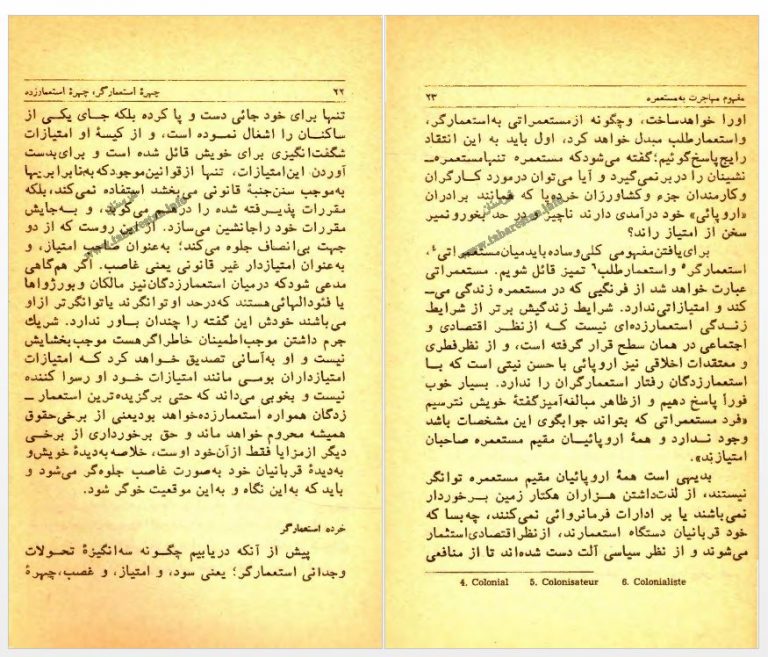 ۲۲ چهرهٔ استعمارگر، چهرهٔ استعمارزده
تنها برای خود جائی دست و پا کرده بلکه جـای یکـی از
ساکنـان را اشغال نمـوده است، و از کیسهٔ او امتیازات
شگفت‌انگیزی برای خویش قائل شده است و برای‌بدست
آوردن این‌امتیازات، تنها ازقوانین‌موجودکه‌به‌نابرابریها
به‌موجب سنن‌جنبهٔ قانونی می‌بخشد استفاده نمی‌کند، بلکه
مقررات پذیـرفته شده را درهـم می‌کوبد، و بـه‌جایش
مقررات خود راجانشین می‌سازد. از این روست که از دو
جهت بی‌انصاف جلوه می‌کند؛ به‌عنوان صاحب امتیاز، و
به‌عنوان امتیازدار غیر قانونی یعنی غاصب. اگر هم‌گاهی
مدعی شودکه درمیان استعمارزدگان‌نیز مالکان وبورژواها
یا فئودالهائی‌هستند که‌درحد اوتوانگرند یاتوانگرتر ازاو
می‌باشند خودش این گفته را چندان بـاور ندارد. شریك
جرم داشتن موجب‌اطمینان خاطراگرهست موجب‌بخشایش
نیست و او به‌آسانی تصدیق خـواهد کرد کـه امتیازات
امتیازداران بومـی مانند امتیازات خـود او رسوا کننده
نیست و بخوبی می‌داند که حتی برگزیده‌ترین استعمار ـ
زدگان همواره استعمارزده‌خواهد بودیعنی از برخی‌حقوق
همیشه محروم خواهد ماند و حق برخورداری از برخـی
دیگر ازمزایا فقط ازآن‌خود اوست، خلاصه‌به‌دیدهٔ خویش‌و
به‌دیدهٔ قربانیان خود به‌صورت غاصب جلوه‌گر می‌شود و
باید که به‌این نگاه و به‌این موقعیت خوگر شود.
خرده استعمارگر
پیش از آنکه دریابیم چگـونه سه‌انگیزهٔ تحـولات
وجدانی استعمارگر؛ یعنی سود، و امتیاز، و غصب،چهرهٔ
مفهوم مهاجرت به‌مستعمره ۲۳
اورا خواهدساخت، وچگونه ازمستعمراتی به‌استعمارگر،
واستعمارطلب مبدل خواهد کرد، اول باید به این انتقاد
رایج‌پاسخ‌گوئیم؛گفته می‌شودکه مستعمره تنهامستعمره‌ـ
نشینان را دربرنمی‌گیرد و آیا می‌توان درمورد کـارگران
وکارمندان جزء وکشاورزان خرده‌پا که همانند برادران
«اروپائی» خود درآمدی دارند ناچیز و در حد بخورونمیر
سخن از امتیاز راند؟
برای‌یافتن‌مفهومی کلی‌وساده‌بایدمیان‌مستعمراتی۴،
استعمارگر۵ واستعمارطلب۶ تمیز قائل شویم. مستعمراتی
عبارت خواهد شد از فرنگیی که در مستعمره زندگی می‌ـ
کند و امتیازاتی‌ندارد. شرایط زندگیش برتر از شرایط
زنـدگی استعمارزده‌ای نیست کـه ازنظـر اقتصادی و
اجتماعی در همان سطح قرار گرفته است، و از نظرفطری
و معتقدات اخلاقی نیز اروپائی با حسن نیتی است که بـا
استعمارزدگان رفتار استعمارگران را ندارد. بسیار خوب
فوراً پاسخ دهیم و ازظاهر مبالغه‌آمیزگفتهٔ خویش نترسیم
«فرد مستعمراتی که بتواند جوابگوی این مشخصات باشد
وجود نـدارد و همهٔ اروپائیـان مقیم مستعمره صاحبان
امتیازند».
بدیهی است همهٔ اروپائیان مقیم مستعمره توانگر
نیستند، از لذت‌داشتن هـزاران هکتار زمین بـرخوردار
نمی‌باشند یا بر ادارات فرمانروائی نمی‌کنند، چه‌بسا که
خود قربانیان دستگاه استعمارند، ازنظراقتصادی‌استثمار
می‌شوند و از نظر سیاسی آلت دست شده‌اند تا از منافعی
4. Colonial 5. Colonisateur 6. Colonialiste
تبرستان
www.tabarestan.info
تبرستان
www.tabarestan.info